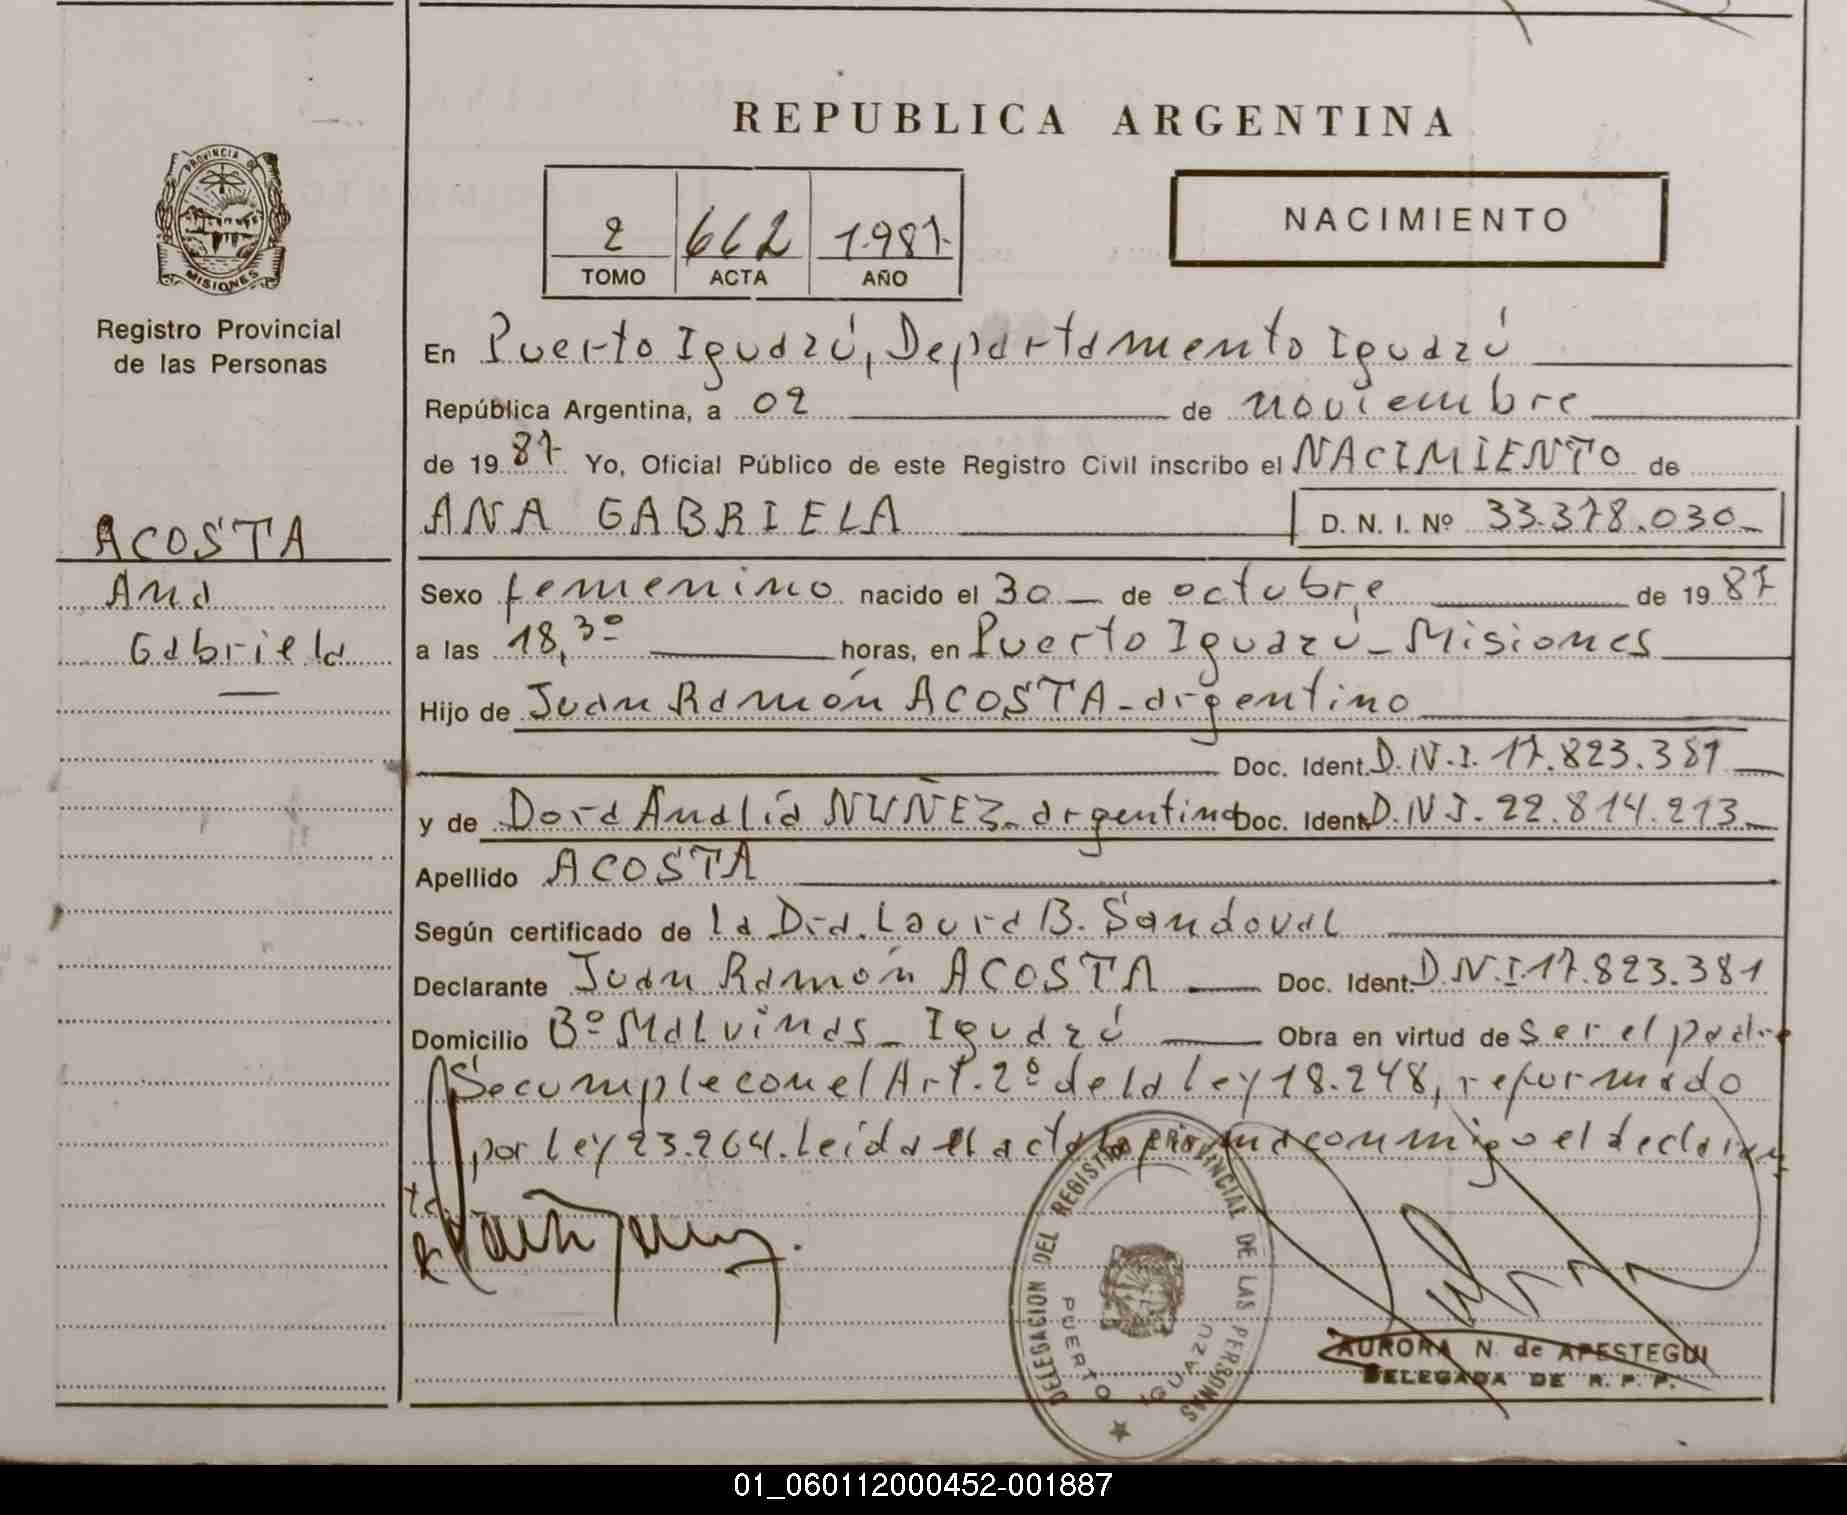 REPUBLICA ARGENTINA
PROVINCIA DE
MISIONES
Registro Provincial
de las Personas
2 662 1987
TOMO ACTA AÑO
NACIMIENTO
En Puerto Iguazú, Departamento Iguazú
República Argentina, a 02 de noviembre
de 1987 Yo, Oficial Público de este Registro Civil inscribo el NACIMIENTO de
ANA GABRIELA D. N. I. Nº 33.378.030
ACOSTA
Ana
Gabriela
Sexo femenino nacido el 30 de octubre de 1987
a las 18,30 horas, en Puerto Iguazú - Misiones
Hijo de Juan Ramón ACOSTA - argentino
Doc. Ident. D.N.I. 17.823.381
y de Dora Analía NUÑEZ - argentina Doc. Ident. D.N.I. 22.814.213
Apellido ACOSTA
Según certificado de la Dra. Laura B. Sandoval
Declarante Juan Ramón ACOSTA Doc. Ident. D.N.I 17.823.381
Domicilio Bº Malvinas - Iguazú Obra en virtud de ser el padre
Se cumple con el Art. 2º de la Ley 18.248, reformado
por Ley 23.264. Leida el acta la firma conmigo el declaran
te.
DELEGACION DEL REGISTRO PROVINCIAL DE LAS PERSONAS
PUERTO IGUAZU
AURORA N. de APESTEGUI
DELEGADA DE R. P. P.
01_060112000452-001887